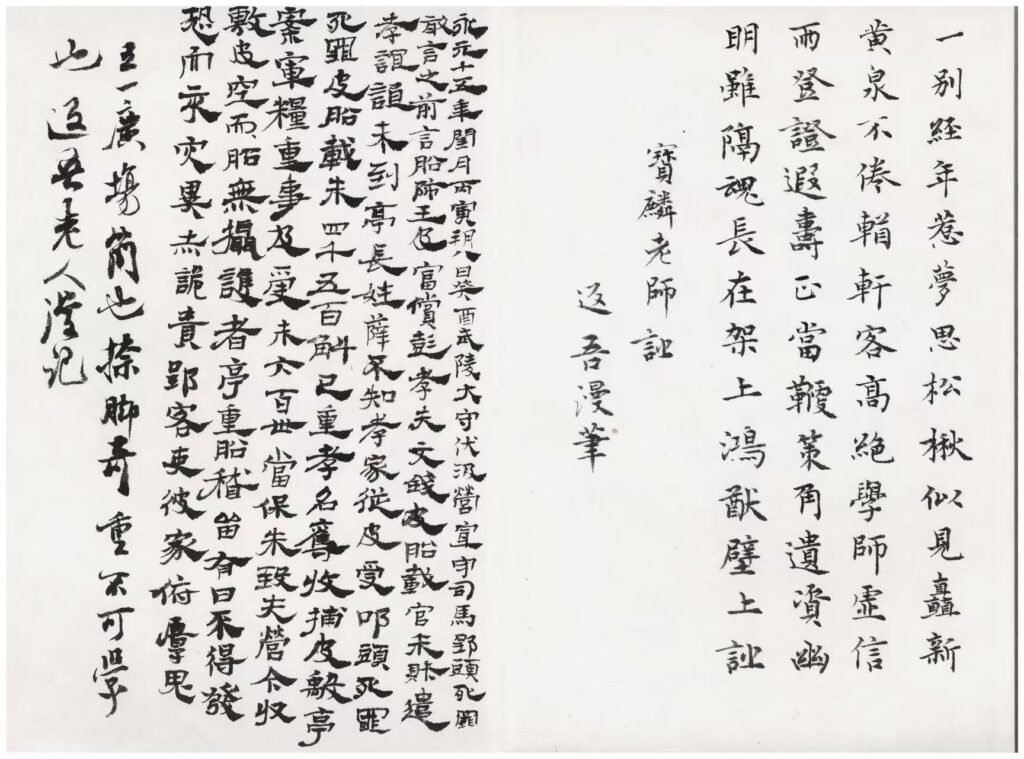 一別経年惹夢思松楸似見矗新
黄泉不倦輶軒客高絶學師虛信
而登證遐壽正當鞭策角遺資幽
明雖隔魂長在架上鴻猷壁上訨
寶麟老師訨
返吾漫筆
永元十五年閏月丙寅朔八日癸酉武陵大守伏波營軍守司馬郢頭死罪
敢言之前言船師王皮當償彭孝夫文錢皮船載官米財遣
孝誼詣未到亭長姓薛不知孝家從皮受叩頭死罪
死罪皮船載米四千五百斛已重孝名奪收捕皮毄亭
案軍糧重事及受米六百卅當保米致夫營今收
毄皮空而船無攝護者亭重船稽留有日不得發
恐而夜災異赤詭責郢客吏彼家俯
五一廣場簡也捺脚奇重不可學
也返吾老人漫記